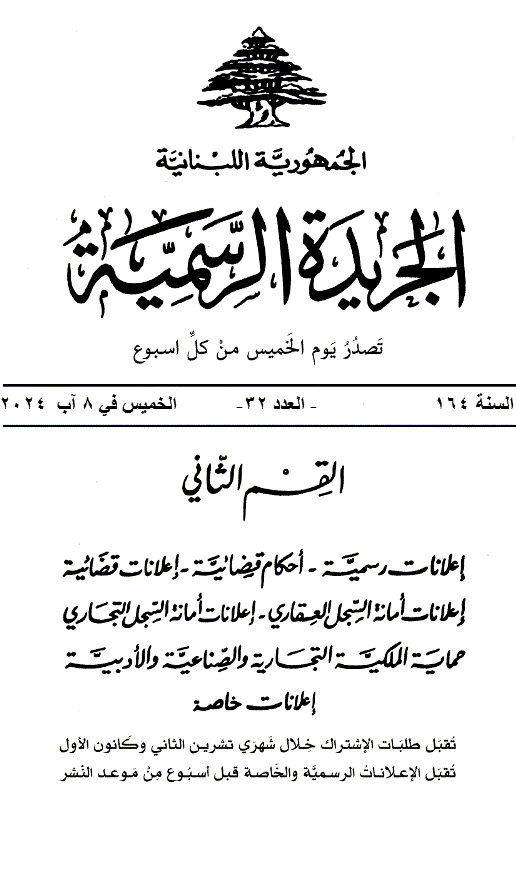 الجمهورية اللبنانية
الجريدة الرسمية
تَصدُرُ يَوم الخَميس منْ كلِّ اسبوع
السنة ١٦٤ ـ العدد ٣٢- الخميس في ٨ آب ٢٠٢٤
القِسم الثّاني
إعلانات رسميَّة - أحكام قضائيَّة - إعلانات قضائية
إعلانات أمانة السِّجل العقاري - إعلانات أمانة السِّجل التجاري
حماية الملكيَّة التجارية والصِّناعيَّة والأدبيَّة
إعلانات خاصة
تُقبَل طلبَات الإشتراك خِلال شَهرَي تشرين الثاني وكَانون الأول
تُقبَل الإعلانات الرسميَّة والخَاصة قبل أسبُوع مِنْ مَوعد النّشر